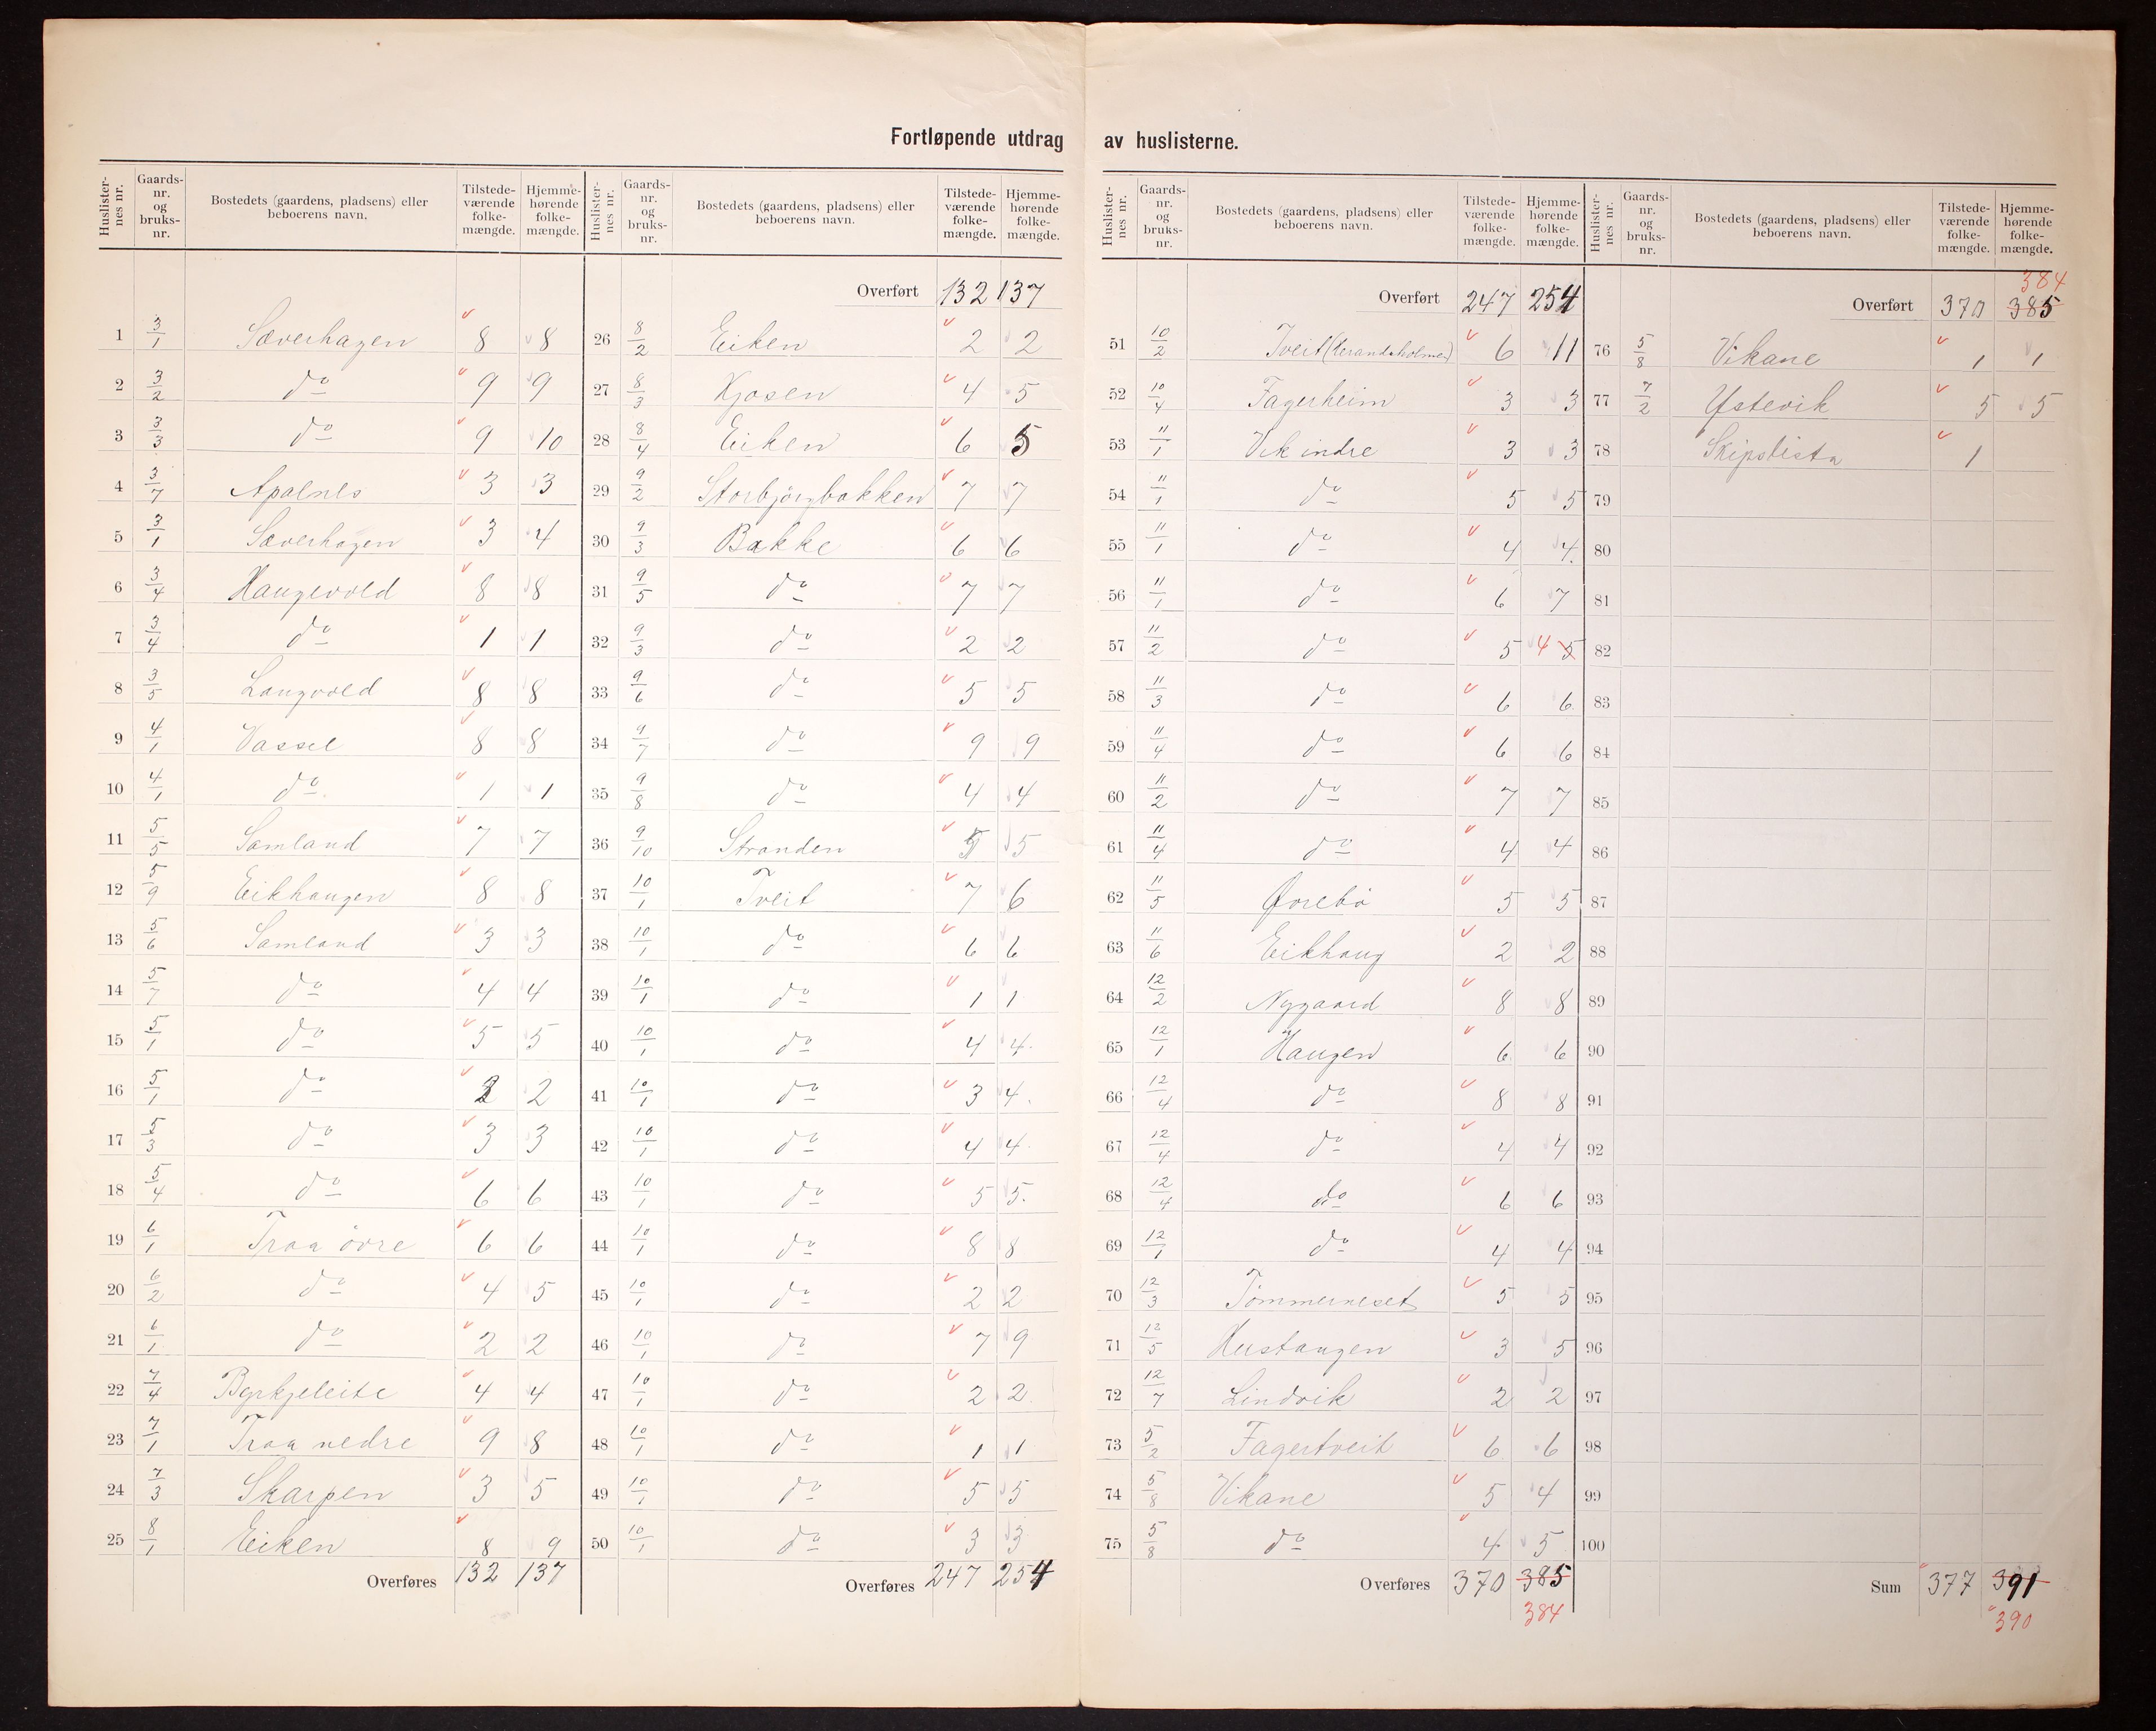 Fortløpende utdrag av huslisternes.
Huslister-nes nr. Gaards-nr. og bruks-nr. Bostedets (gaardens, pladsens) eller beboerens navn. Tilstede-værende folke-mængde. Hjemme-hørende folke-mængde.
1 3/1 Sæverhagen 8 8
2 3/2 do 9 9
3 3/3 do 9 10
4 3/7 Apalnes 3 3
5 3/1 Sæverhagen 3 4
6 3/4 Haugevold 8 8
7 3/4 do 1 1
8 3/5 Langvold 8 8
9 4/1 Vassel 8 8
10 4/1 do 1 1
11 5/5 Samland 7 7
12 5/9 Eikhaugen 8 8
13 5/6 Samland 3 3
14 5/7 do 4 4
15 5/1 do 5 5
16 5/1 do 2 2
17 5/3 do 3 3
18 5/4 do 6 6
19 6/1 Traa övre 6 6
20 6/2 do 4 5
21 6/1 do 2 2
22 7/4 Byrkjeleite 4 4
23 7/1 Traa nedre 9 8
24 7/3 Skarpen 3 5
25 8/1 Eiken 8 9
Overføres 132 137
Huslister-nes nr. Gaards-nr. og bruks-nr. Bostedets (gaardens, pladsens) eller beboerens navn. Tilstede-værende folke-mængde. Hjemme-hørende folke-mængde.
Overført 132 137
26 8/2 Eiken 2 2
27 8/3 Kjosen 4 5
28 8/4 Eiken 6 5
29 9/2 Storbjörgbakken 7 7
30 9/3 Bakke 6 6
31 9/5 do 7 7
32 9/3 do 2 2
33 9/6 do 5 5
34 9/7 do 9 9
35 9/8 do 4 4
36 9/10 Stranden 5 5
37 10/1 Tveit 7 6
38 10/1 do 6 6
39 10/1 do 1 1
40 10/1 do 4 4
41 10/1 do 3 4
42 10/1 do 4 4
43 10/1 do 5 5
44 10/1 do 8 8
45 10/1 do 2 2
46 10/1 do 7 9
47 10/1 do 2 2
48 10/1 do 1 1
49 10/1 do 5 5
50 10/1 do 3 3
Overføres 247 254
Huslister-nes nr. Gaards-nr. og bruks-nr. Bostedets (gaardens, pladsens) eller beboerens navn. Tilstede-værende folke-mængde. Hjemme-hørende folke-mængde.
Overført 247 254
51 10/2 Tveit 6 11
52 10/4 Fagerheim 3 3
53 11/1 Vik indre 3 3
54 11/1 do 5 5
55 11/1 do 4 4
56 11/1 do 6 7
57 11/2 do 5 4 5
58 11/3 do 6 6
59 11/4 do 6 6
60 11/2 do 7 7
61 11/4 do 4 4
62 11/5 Örebö 5 5
63 11/6 Eikhaug 2 2
64 12/2 Nygaard 8 8
65 12/1 Haugen 6 6
66 12/4 do 8 8
67 12/4 do 4 4
68 12/4 do 6 6
69 12/1 do 4 4
70 12/3 Tömmerneset 5 5
71 12/5 Hustangen 3 5
72 12/7 Lindvik 2 2
73 5/2 Fagertveit 6 6
74 5/8 Vikane 5 4
75 5/8 do 4 5
Overføres 370 385
384
Huslister-nes nr. Gaards-nr. og bruks-nr. Bostedets (gaardens, pladsens) eller beboerens navn. Tilstede-værende folke-mængde. Hjemme-hørende folke-mængde.
384
Overført 370 385
76 5/8 Vikane 1 1
77 7/2 Ystevik 5 5
78 Skipslista 1
79
80
81
82
83
84
85
86
87
88
89
90
91
92
93
94
95
96
97
98
99
100
Sum 377 391
390